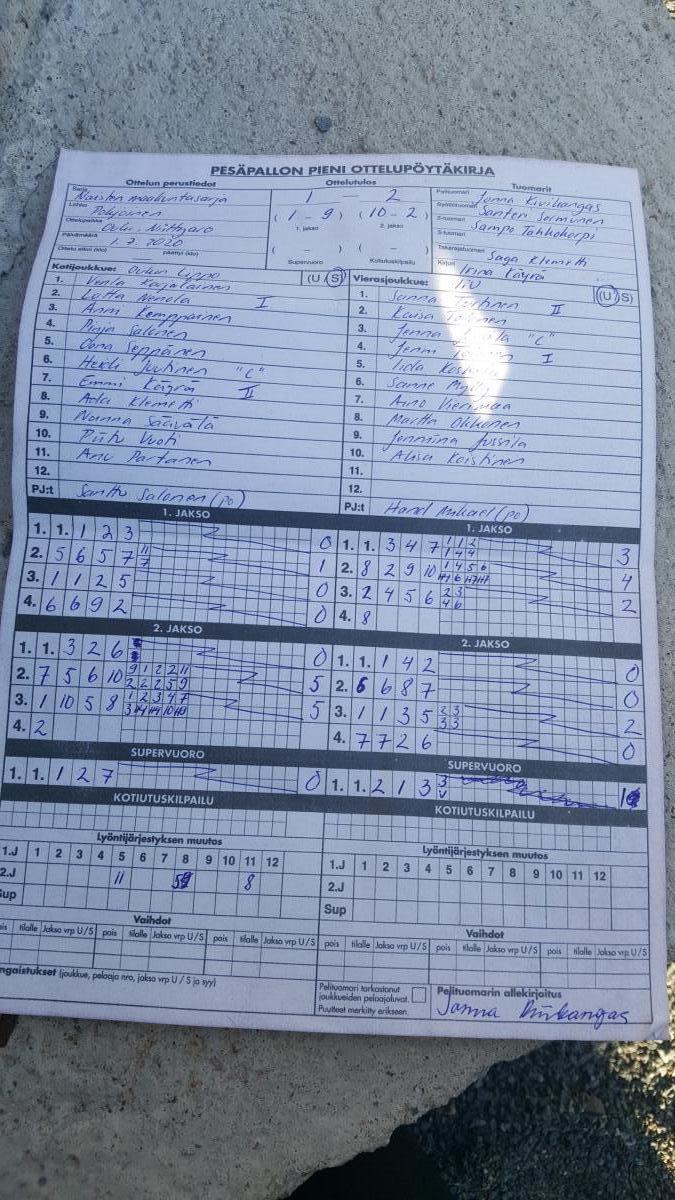 PESÄPALLON PIENI OTTELUPÖYTÄKIRJA
Ottelun perustiedot
Sarja Naisten maakuntasarja
Lohko Pohjoinen
Ottelupaikka Oulu, Niittyaro
Päivämäärä 1.7.2020
Ottelu alkoi (klo) päättyi (klo)
Ottelutulos
1 — 2
(1 - 9) (10 - 2)
1. jakso 2. jakso
( ) ( - )
Supervuoro Kotiutuskilpailu
Tuomarit
Pelituomari Jonna Kivikangas
Syöttötuomari Santeri Sormunen
2-tuomari Sampo Tahkokorpi
3-tuomari
Takarajatuomari Saga Klemetti
Kirjuri Irina Käyrä
Kotijoukkue: Oulun Lippo (U S)
1. Venla Karjalainen
2. Lotta Nenola I
3. Anni Kemppainen
4. Pinja Salonen
5. Oona Seppänen
6. Heidi Juutinen "C"
7. Emmi Käyrä II
8. Ada Klemetti
9. Nanna Säävälä
10. Piitu Vuoti
11. Anu Partanen
12.
PJ:t Santtu Salonen (po)
Vierasjoukkue: (U S)
1. Sanna II
2. Kaisa
3. Jenna "C"
4. Jenni I
5. Iida
6. Sanne
7. Aino
8. Martta Okkonen
9. Jemmina Jussila
10. Alisa Koistinen
11.
12.
PJ:t (po)
1. JAKSO
1. 1. 1 2 3 0
2. 5 6 5 7 11 7 1
3. 1 1 2 5 0
4. 6 6 9 2 0
1. JAKSO
1. 1. 3 4 7 1 1 2 1 4 4 3
2. 8 2 9 10 1 4 5 6 4
3. 2 4 5 6 2 3 4 6 2
4. 8
2. JAKSO
1. 1. 3 2 6 0
2. 7 5 6 10 9 1 2 2 11 2 2 2 5 9 5
3. 1 10 5 8 1 2 3 4 7 5
4. 2
2. JAKSO
1. 1. 1 4 2 0
2. 6 6 8 7 0
3. 1 1 3 5 2 3 3 3 2
4. 7 7 2 6 0
SUPERVUORO
1. 1. 1 2 7 0
SUPERVUORO
1. 1. 2 1 3 3 V 1
KOTIUTUSKILPAILU
KOTIUTUSKILPAILU
Lyöntijärjestyksen muutos
1.J 1 2 3 4 5 6 7 8 9 10 11 12
2.J 11 8
Sup
Lyöntijärjestyksen muutos
1.J 1 2 3 4 5 6 7 8 9 10 11 12
2.J
Sup
Vaihdot
tilalle Jakso vrp U/S pois tilalle Jakso vrp U/S pois tilalle Jakso vrp U/S
Vaihdot
pois tilalle Jakso vrp U/S pois tilalle Jakso vrp U/S pois tilalle Jakso vrp U/S
ngaistukset (joukkue, pelaaja nro, jakso vrp U / S ja syy)
Pelituomari tarkastanut joukkueiden pelaajaluvat.
Puutteet merkitty erikseen.
Pelituomarin allekirjoitus
Jonna Kivikangas